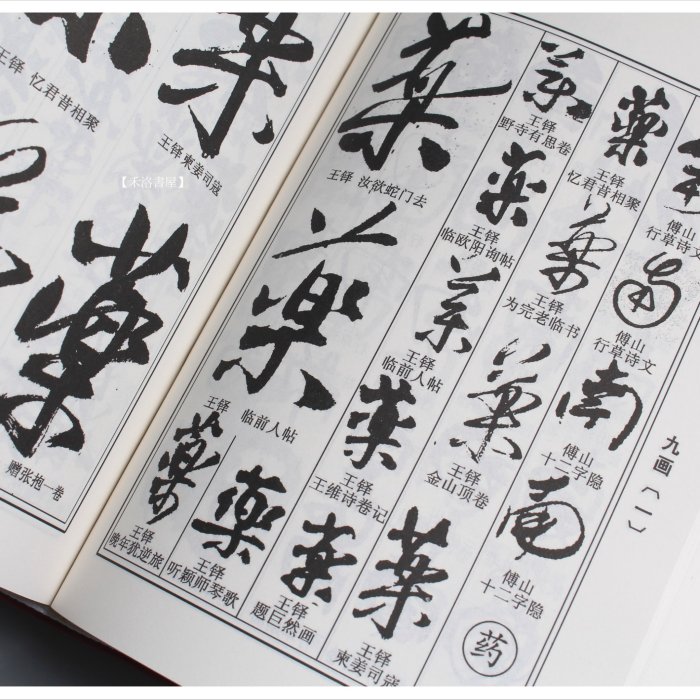 王铎 忆君昔相聚
藥
王铎 柬姜司寇
【禾洛書屋】
藥
赠张抱一卷
藥
王铎 汝欲蛇门去
藥
王铎
野寺有思卷
藥
王铎
忆君昔相聚
傅山
行草诗文
藥
王铎
临欧阳询帖
藥
王铎
为完老临书
南
傅山
行草诗文
藥
王铎 临前人帖
藥
王铎
临前人帖
藥
王铎
王维诗卷记
藥
王铎
金山顶卷
南
傅山
十二字隐
藥
王铎
晚年犹逆旅
藥
王铎
听颖师琴歌
藥
王铎
题巨然画
藥
王铎
柬姜司寇
南
傅山
十二字隐
药
九画(一)